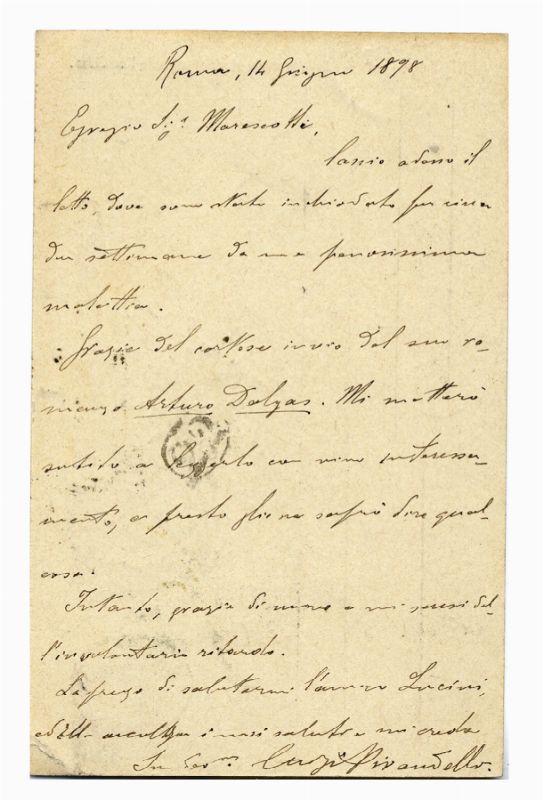 Roma, 14 Giugno 1898
Egregio Sig.r Marescotti,
lascio adesso il
letto, dove sono stato inchiodato per circa
due settimane da una penosissima
malattia.
Grazie del cortese invio del suo ro-
manzo Arturo Dalgas. Mi metterò
subito a leggerlo con vivo interessa-
mento, e presto gliene saprò dire qual-
cosa.
Intanto, grazie di nuovo e mi scusi del-
l'involontario ritardo.
La prego di salutarmi l'amico Lucini,
ed Ella accolga i miei saluti e mi creda
Suo dev.mo Luigi Pirandello.